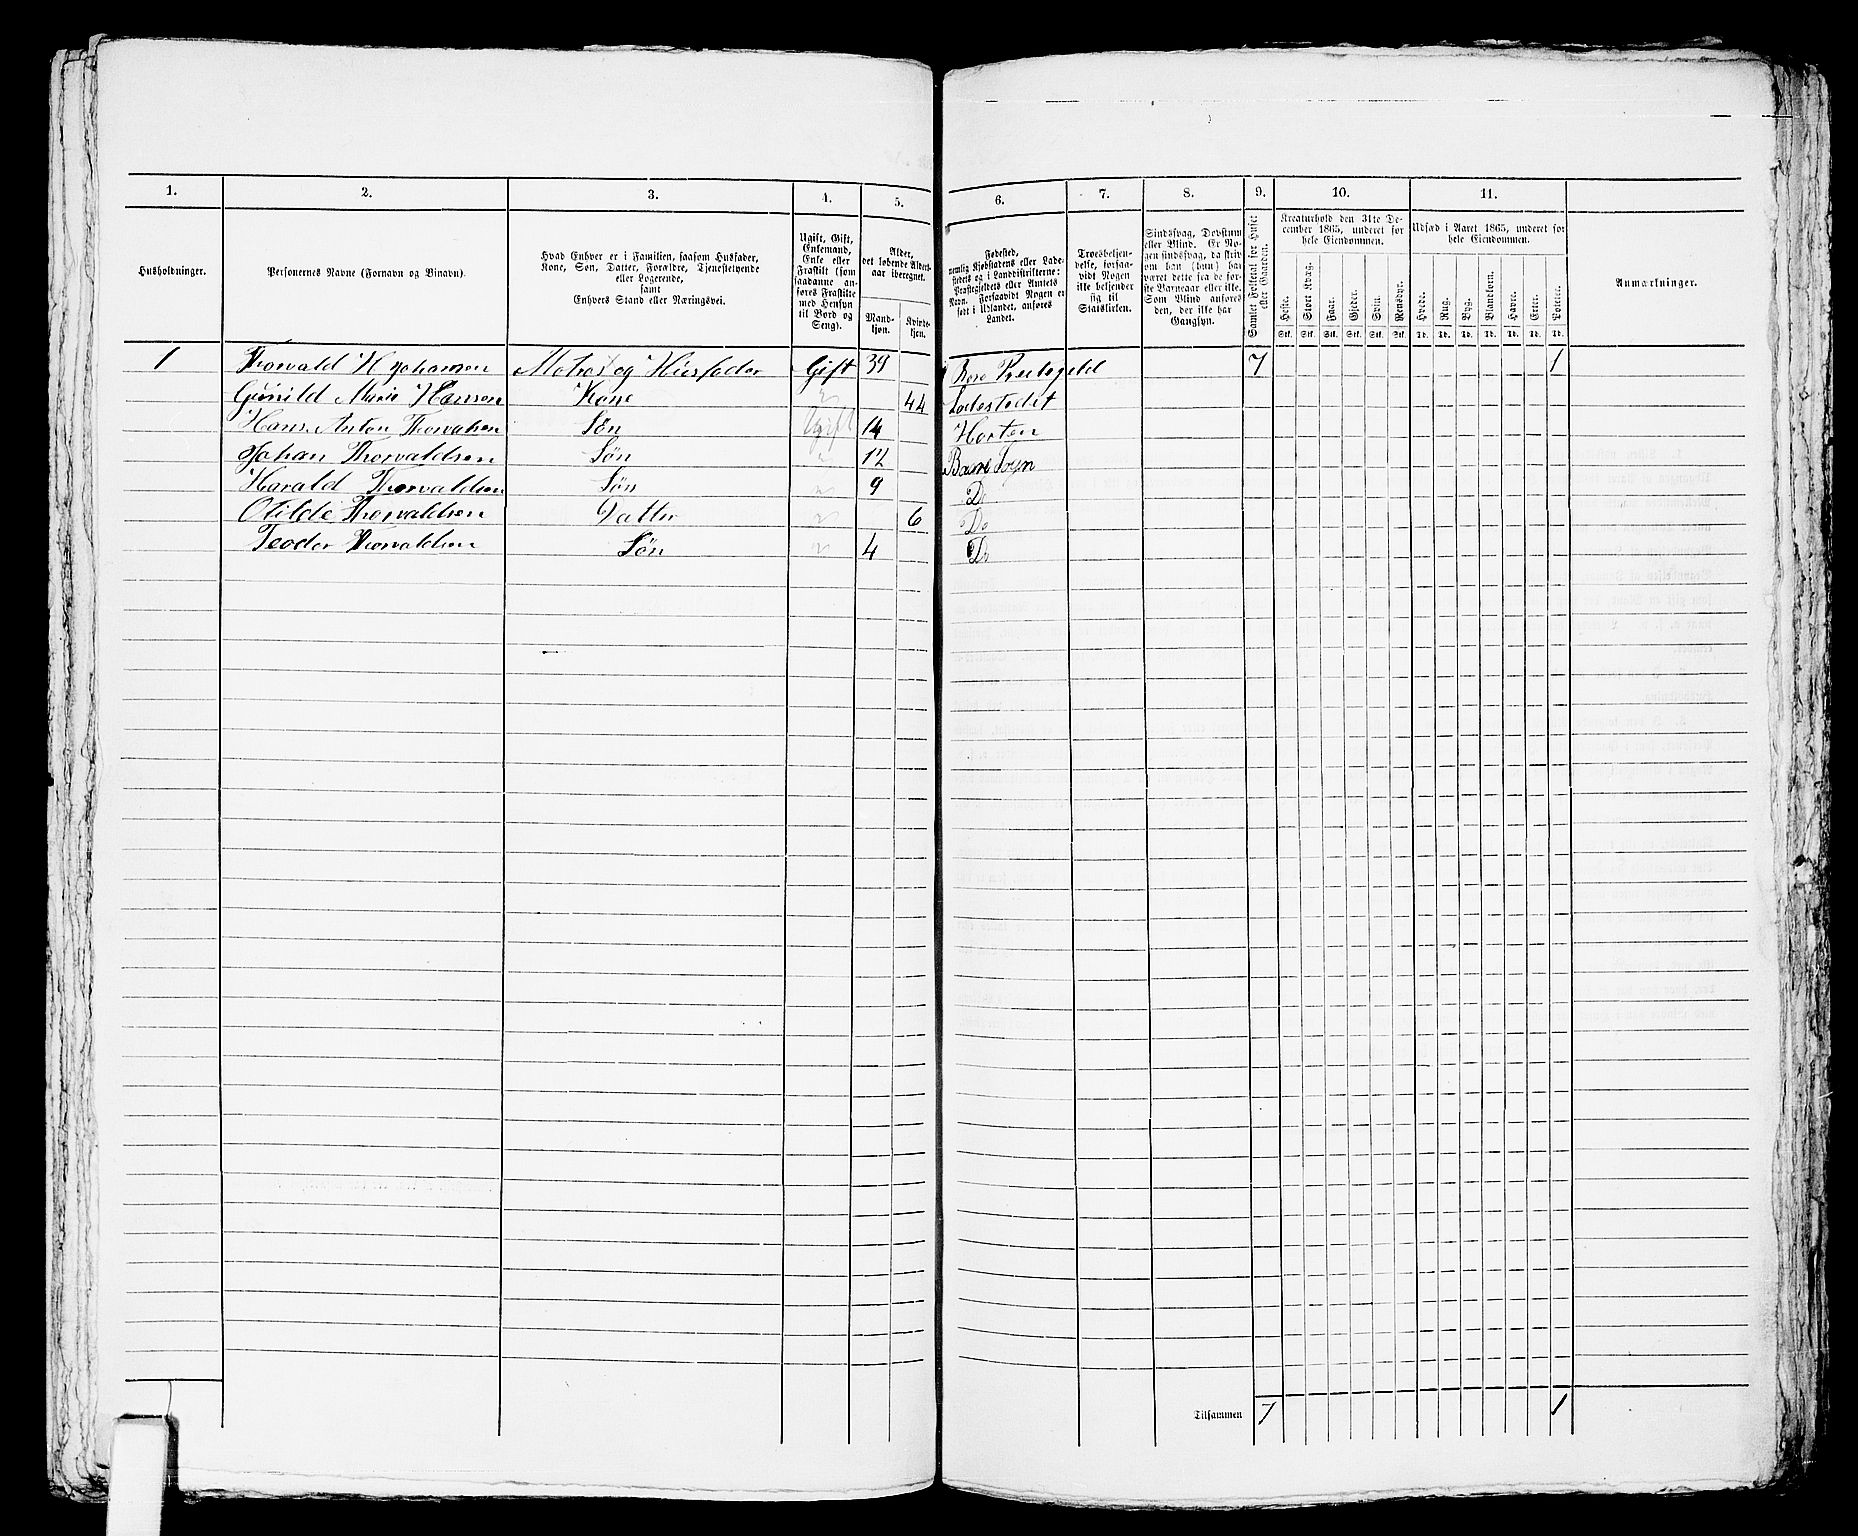 1. 2. 3. 4. 5. 6. 7. 8. 9. 10. 11.
Husholdninger.
Personernes Navne (Fornavn og Binavn).
Hvad Enhver er i Familien, saasom Husfader,
Kone, Søn, Datter, Forældre, Tjenestetyende
eller Logerende,
samt
Enhvers Stand eller Næringsvei.
Ugift, Gift,
Enkemand,
Enke eller
Fraskilt (som
saadanne an-
føres Fraskilte
med Hensyn
til Bord og
Seng).
Alder,
det løbende Alders-
aar iberegnet.
Mand-
kjøn.
Kvinde-
kjøn.
Fødested,
nemlig Kjøbstadens eller Lade-
stedets og i Landdistrikterne:
Præstegjeldets eller Amtets
Navn. Forsaavidt Nogen er
født i Udlandet, anføres
Landet.
Troesbekjen-
delse, forsaa-
vidt Nogen
ikke bekjender
sig til
Statskirken.
Sindssvag, Døvstum
eller Blind. Er No-
gen sindssvag, da skriv
om han (hun) har
været dette fra de før-
ste Barneaar eller ikke.
Som Blind anføres
den, der ikke har
Gangsyn.
Samlet Folketal for Huset
eller Gaarden.
Kreaturhold den 31te De-
cember 1865, underet for
hele Eiendommen.
Heste. Stort Kvæg. Faar. Gjeder. Sviin. Rensdyr.
Stk. Stk. Stk. Stk. Stk. Stk.
Udsæd i Aaret 1865, underet for
hele Eiendommen.
Hvede. Rug. Byg. Blandkorn. Havre. Erter. Poteter.
Td. Td. Td. Td. Td. Td. Td.
Anmærkninger.
1 Thorvald H Johansen Matros og Husfader Gift 39 Præstegield 7 1
Gunild Marie Hansen Kone 44 Ladestedet
Hans Anton Thorvalsen Søn Ugift 14 Horten
Johan Thorvaldsen Søn 12 Borre Sogn
Harald Thorvaldsen Søn 9 Do
Otilde Thorvaldsen Datter 6 Do
Teodor Thorvaldsen Søn 4 Do
Tilsammen 7 1